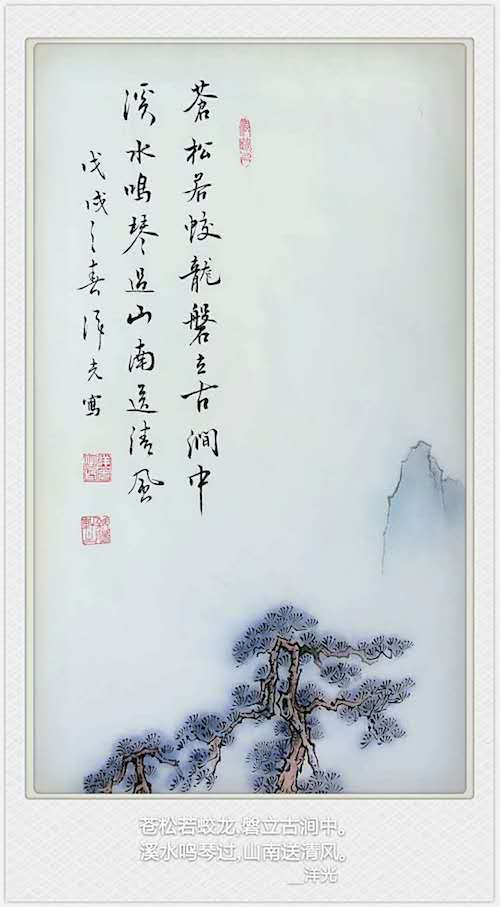 蒼松若蛟龍磐立古澗中
溪水鳴琴過山南送清風
戊戌之春洋光寫
苍松若蛟龙,磐立古涧中。
溪水鸣琴过,山南送清风。
__洋光